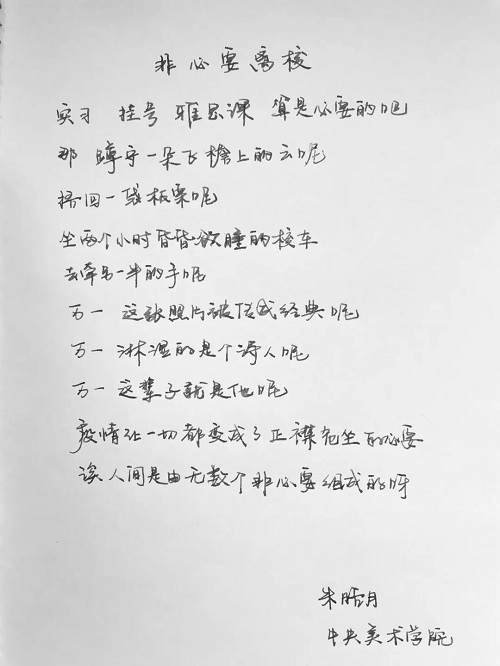 非必要离校
实习 挂号 雅思课 算是必要的吧
那 蹲守一朵飞檐上的云呢
捎回一袋板栗呢
坐两个小时昏昏欲睡的校车
去牵另一半的手呢
万一 这张照片被传成经典呢
万一 淋湿的是个诗人呢
万一 这辈子就是他呢
疫情让一切都变成了正襟危坐的必要
诶 人间是由无数个非必要组成的呀
朱皓月
中央美术学院